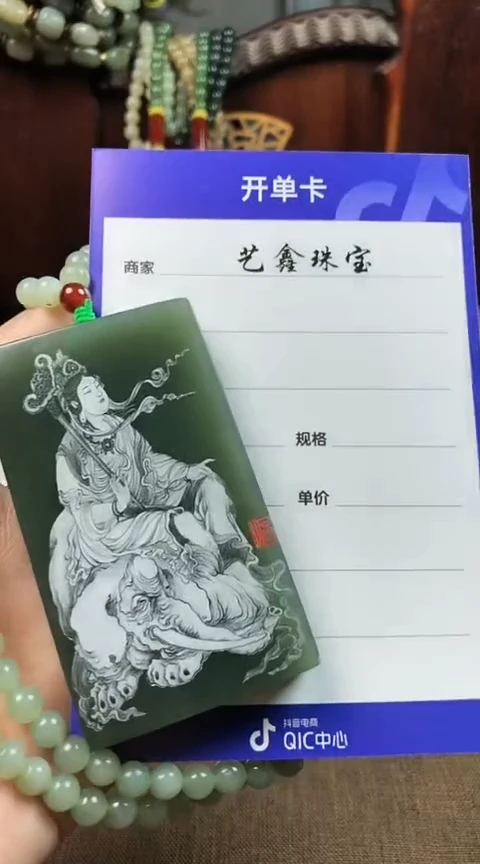 开单卡
商家 艺鑫珠宝
规格
单价
抖音电商
QIC中心